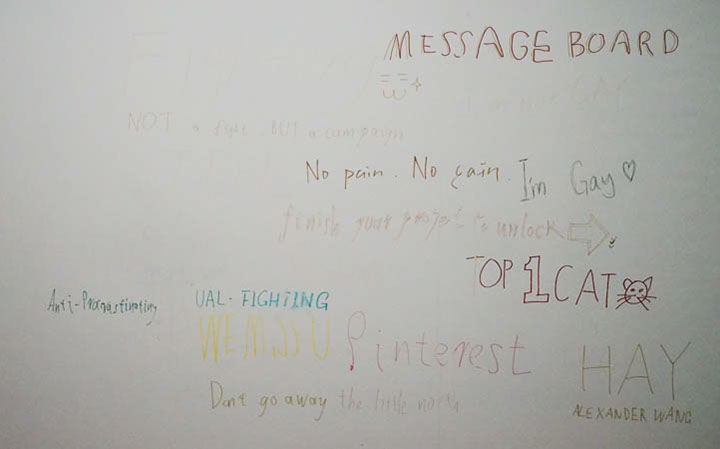 MESSAGE BOARD
I'm not GAY
NOT a fight BUT a campaign
No pain. No gain.
I'm Gay
finish your project to unlock
TOP 1 CAT
Anti-Procrastinating
UAL·FIGHTING
WE MSS U
Pinterest
HAY
ALEXANDER WANG
Don't go away the little